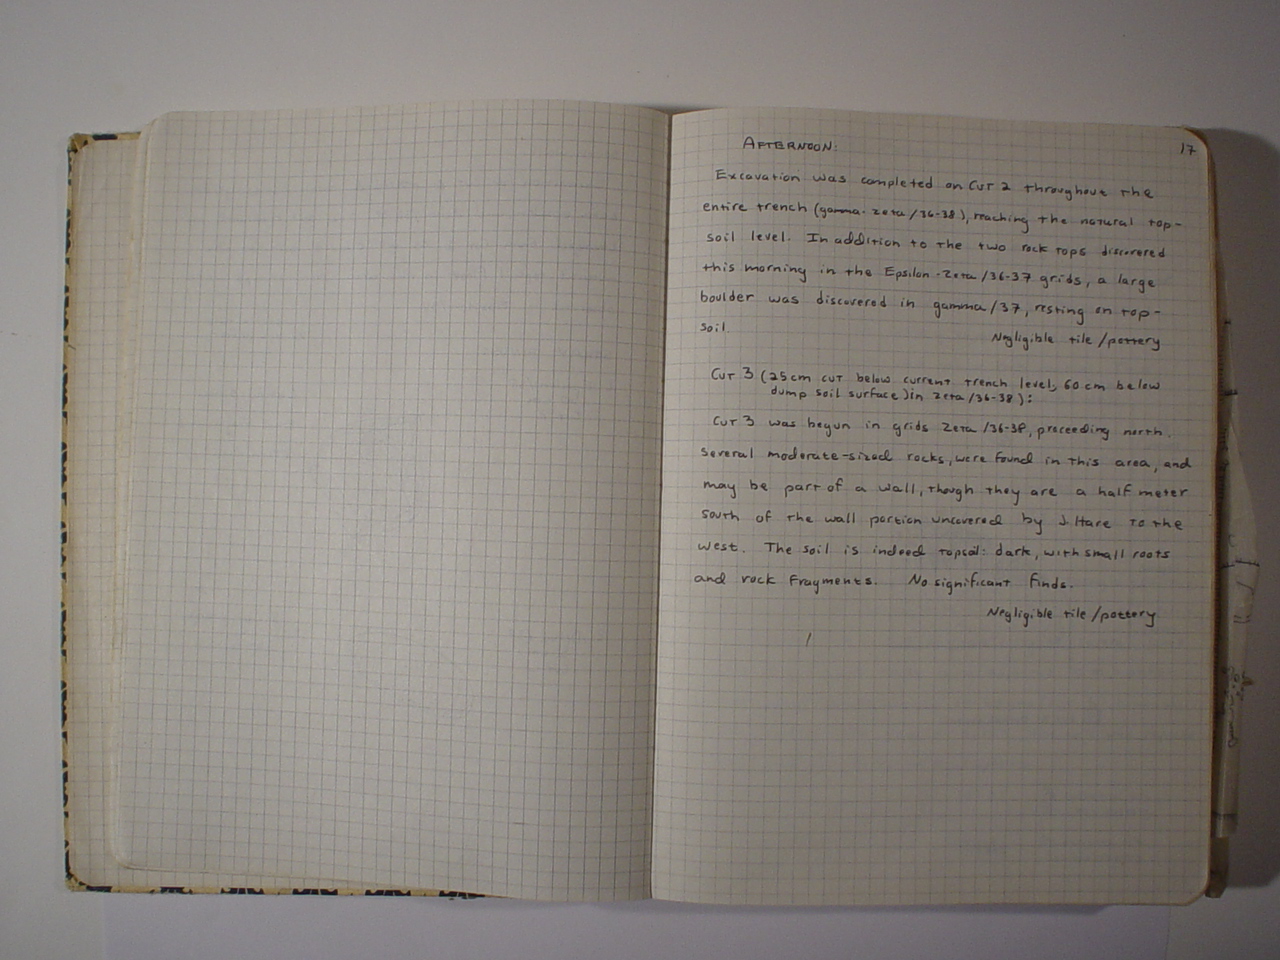 17
AFTERNOON:
Excavation was completed on Cut 2 throughout the
entire trench (gamma-zeta/36-38), reaching the natural top-
soil level. In addition to the two rock tops discovered
this morning in the Epsilon-Zeta/36-37 grids, a large
boulder was discovered in gamma/37, resting on top-
soil.
Negligible tile/pottery
Cut 3 (25cm cut below current trench level, 60 cm below
dump soil surface) in Zeta/36-38):
Cut 3 was begun in grids Zeta/36-38, proceeding north.
Several moderate-sized rocks, were found in this area, and
may be part of a wall, though they are a half meter
south of the wall portion uncovered by J. Hare to the
west. The soil is indeed topsoil: dark, with small roots
and rock fragments. No significant finds.
Negligible tile/pottery